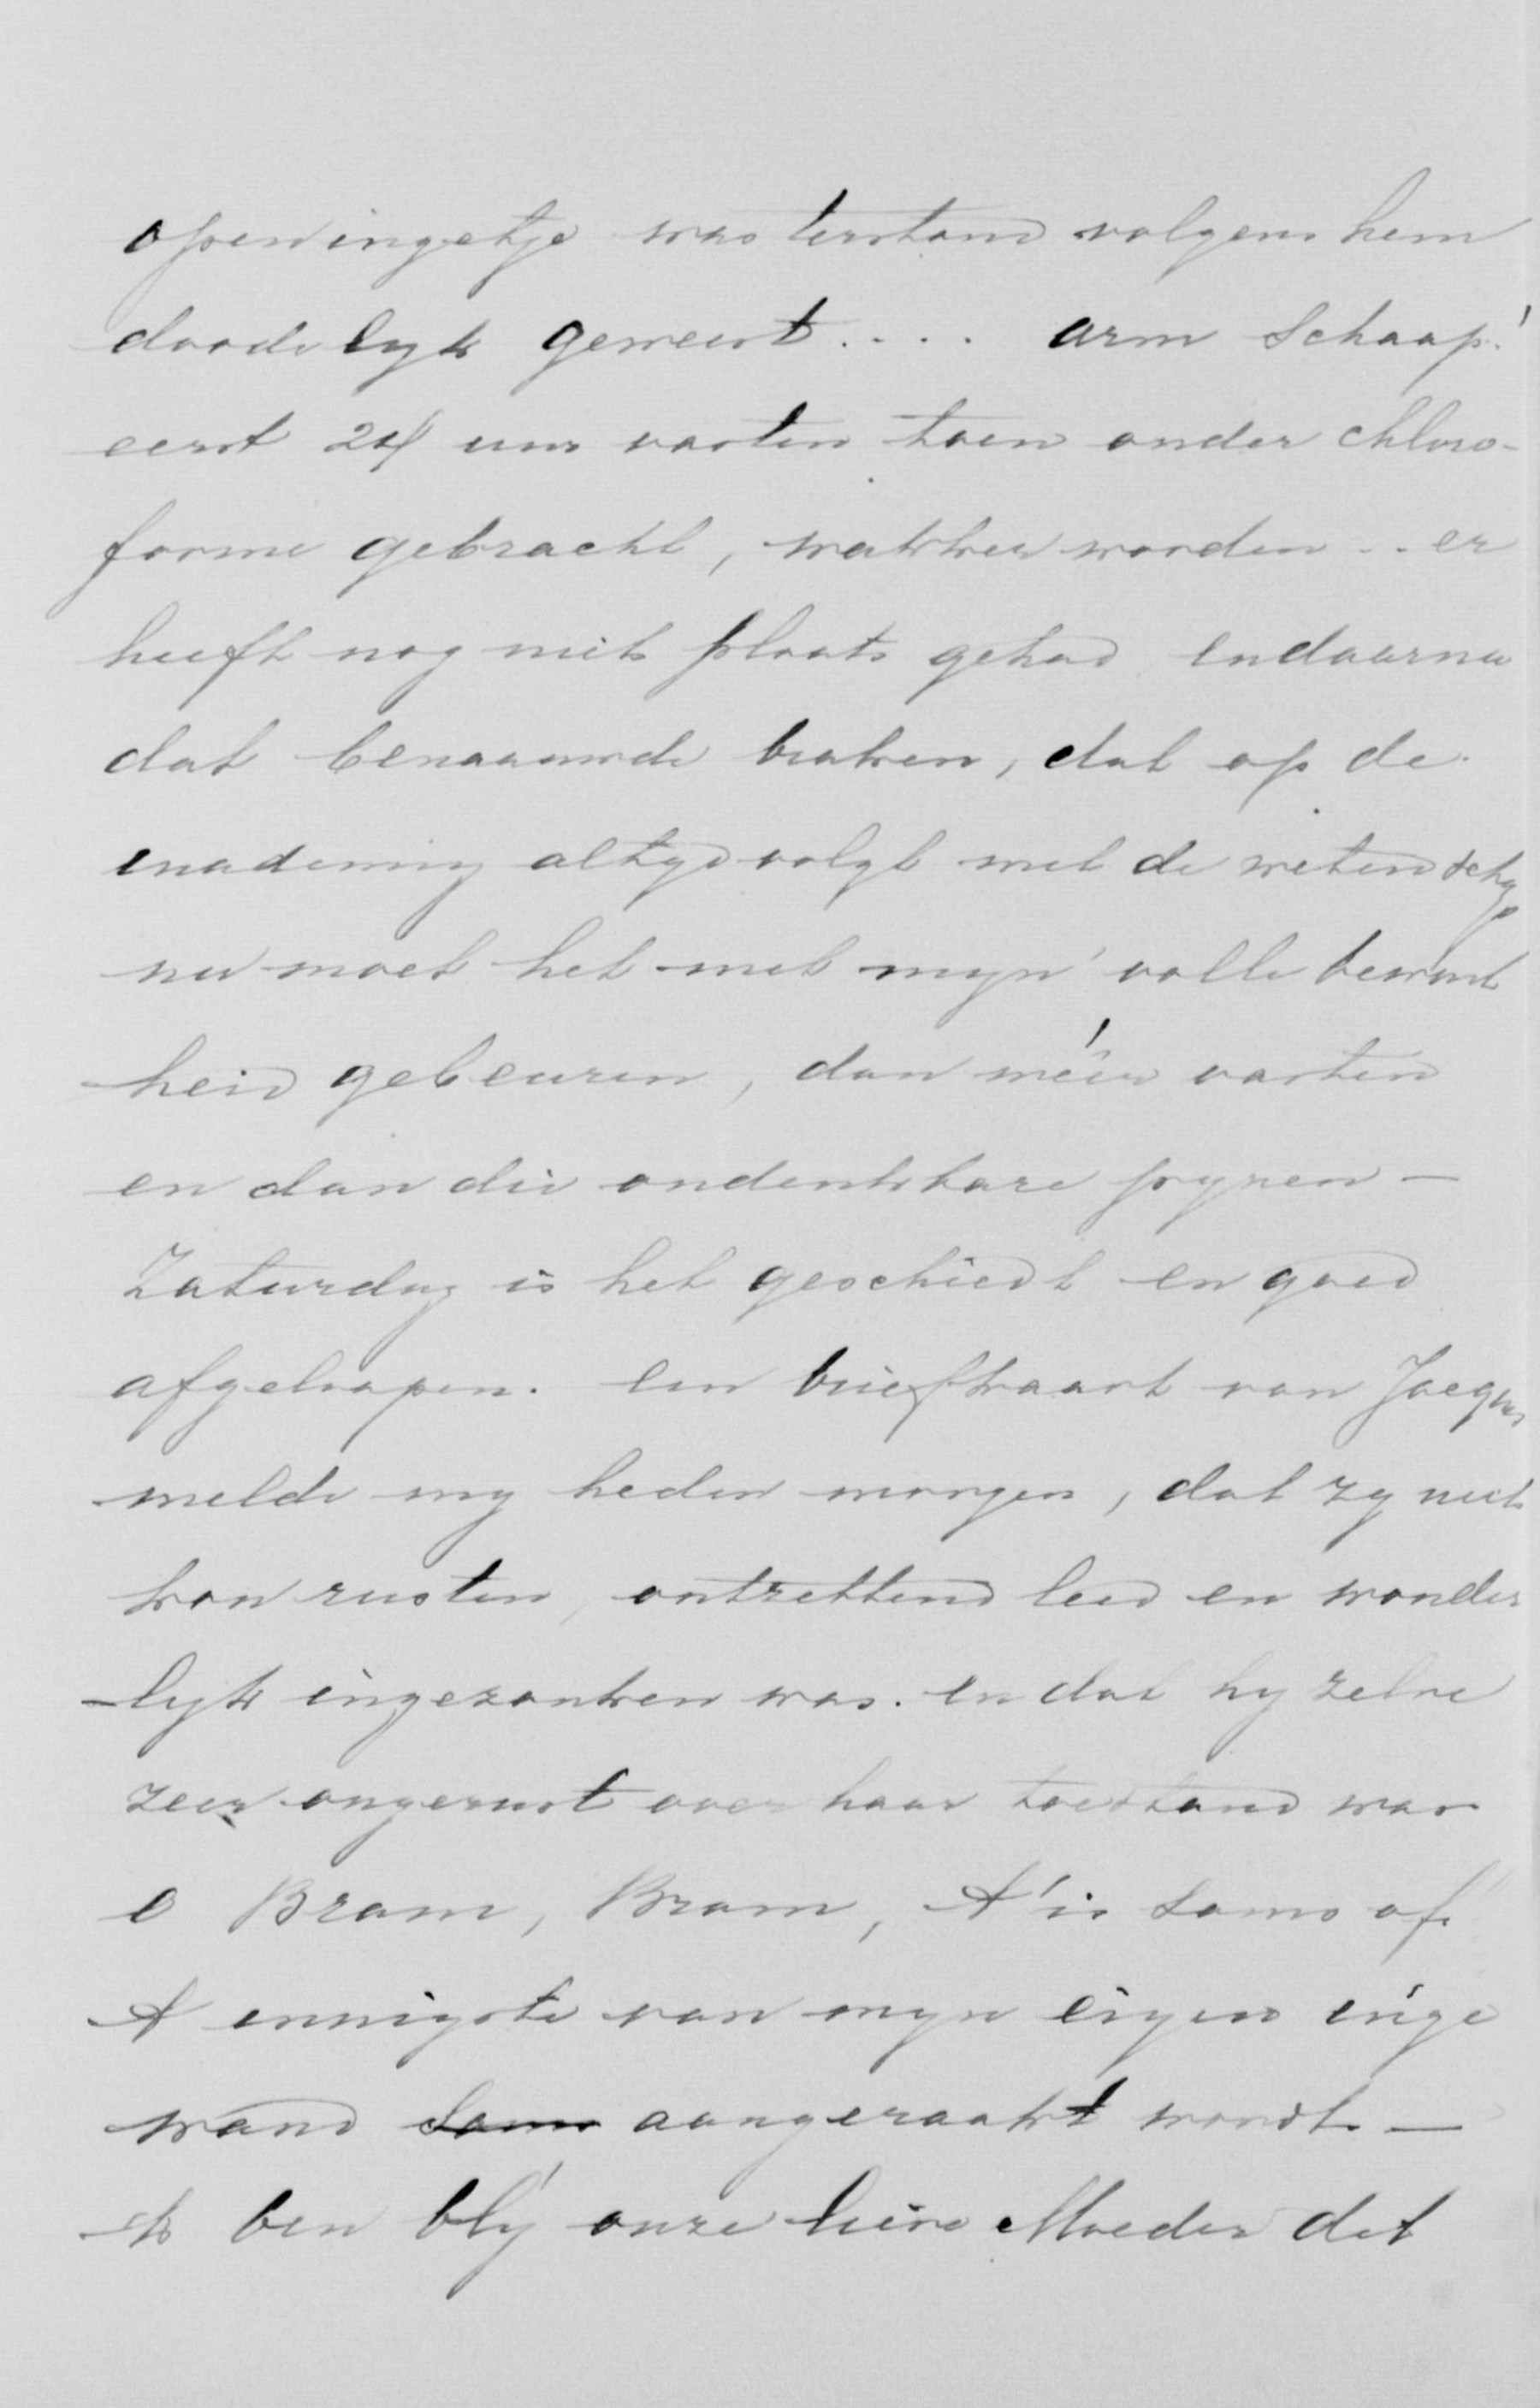 openingetje was terstond volgens hem
doodelyk geweest.... arm schaap!
eerst 24 uur vasten toen onder chloro-
forme gebracht, wakker worden .. er
heeft nog niets plaats gehad en daarna
dat benaauwde braken, dat op de
inademing altyd volgt met de wetenschap
nu moet het met myn volle bewust
heid gebeuren, dan méér vasten
en dan die ondenkbare pynen —
Zaturdag is het geschiedt en goed
afgeloopen. een briefkaart van Jacques
melde my heden morgen, dat zy niet
kon rusten, ontzettend leed en wonder
-lyk ingezonken was. en dat hy zelve
zeer ongerust over haar toestand was
O Bram, Bram, 't is soms of
't innigste van myn eigen inge
wand soms aangeraakt wordt —
ik ben bly onze lieve Moeder dit